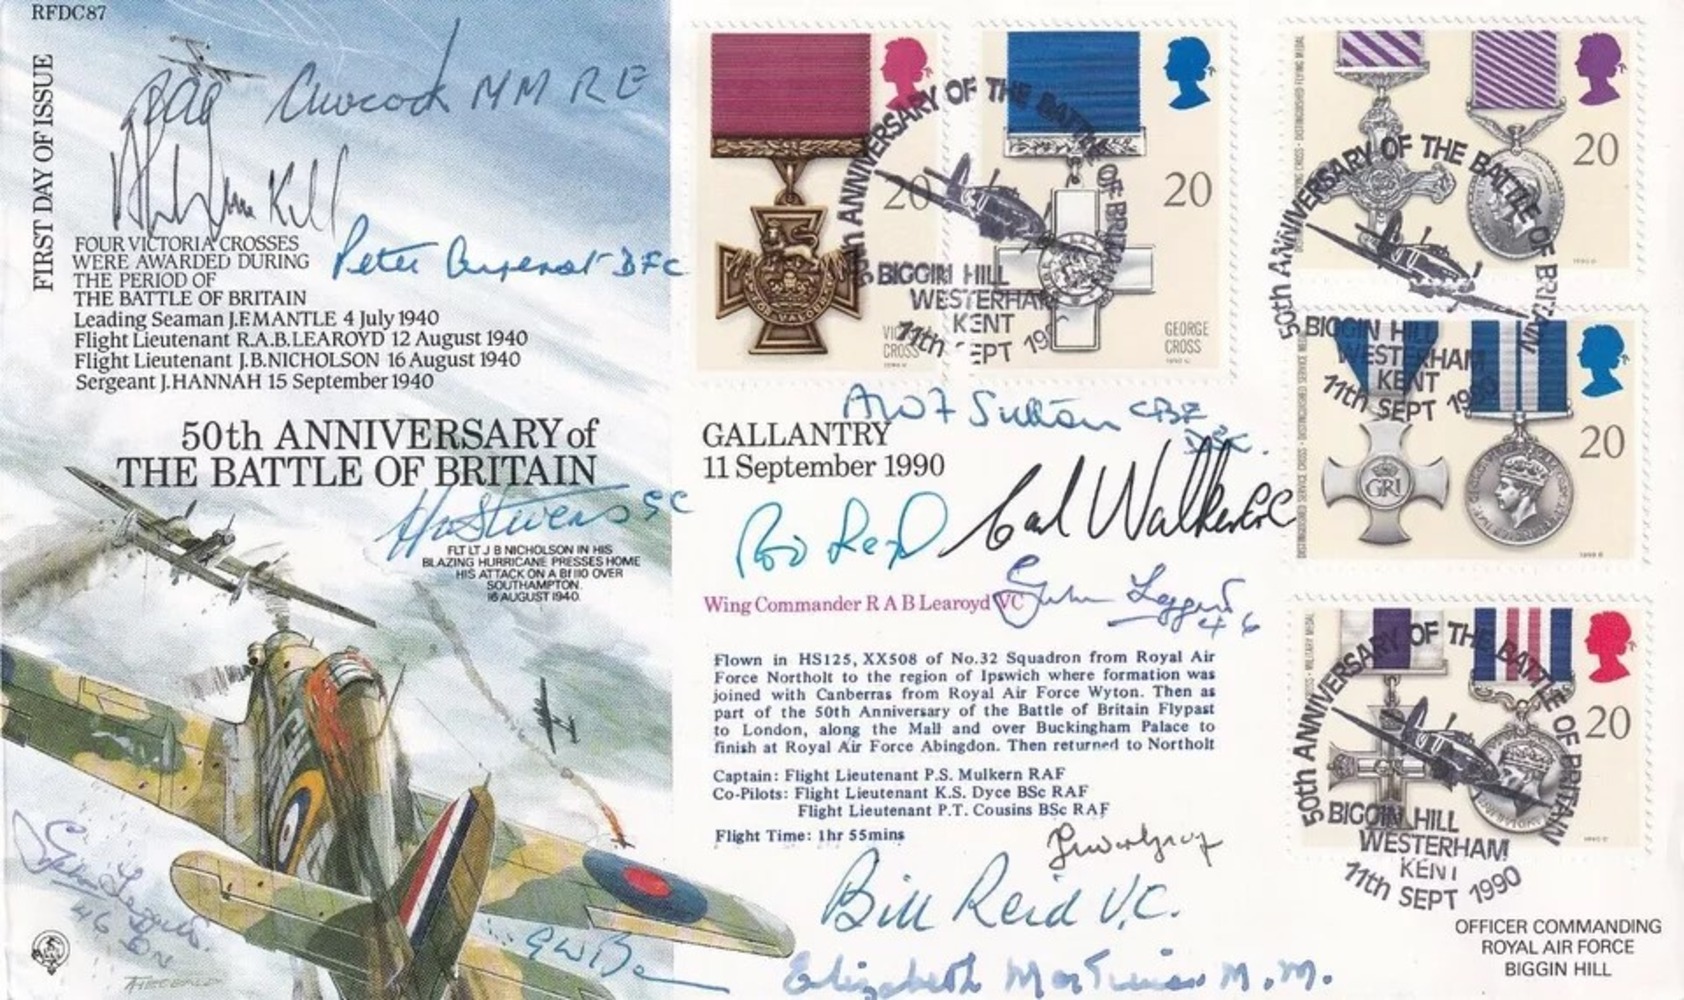 RFDC87
FIRST DAY OF ISSUE
MM RE
Hill
Peter DFC
FOUR VICTORIA CROSSES
WERE AWARDED DURING
THE PERIOD OF
THE BATTLE OF BRITAIN
Leading Seaman J.F.MANTLE 4 July 1940
Flight Lieutenant R.A.B.LEAROYD 12 August 1940
Flight Lieutenant J.B.NICHOLSON 16 August 1940
Sergeant J.HANNAH 15 September 1940
50th ANNIVERSARY of
THE BATTLE OF BRITAIN
Stevens GC
FLT LT J B NICHOLSON IN HIS
BLAZING HURRICANE PRESSES HOME
HIS ATTACK ON A Bf 110 OVER
SOUTHAMPTON.
16 AUGUST 1940.
John
46 Sqn
20
VICTORIA
CROSS
20
GEORGE
CROSS
50th ANNIVERSARY OF THE BATTLE OF BRITAIN
BIGGIN HILL
WESTERHAM
KENT
11th SEPT 1990
DISTINGUISHED FLYING CROSS · DISTINGUISHED FLYING MEDAL
20
50th ANNIVERSARY OF THE BATTLE OF BRITAIN
BIGGIN HILL
WESTERHAM
KENT
11th SEPT 1990
DISTINGUISHED SERVICE CROSS · DISTINGUISHED SERVICE MEDAL
GRI
20
MILITARY MEDAL
20
50th ANNIVERSARY OF THE BATTLE OF BRITAIN
BIGGIN HILL
WESTERHAM
KENT
11th SEPT 1990
Sutton CBE
GALLANTRY
11 September 1990
Carl Walker GC
Wing Commander R A B Learoyd VC
John
46
Flown in HS125, XX508 of No.32 Squadron from Royal Air
Force Northolt to the region of Ipswich where formation was
joined with Canberras from Royal Air Force Wyton. Then as
part of the 50th Anniversary of the Battle of Britain Flypast
to London, along the Mall and over Buckingham Palace to
finish at Royal Air Force Abingdon. Then returned to Northolt
Captain: Flight Lieutenant P.S. Mulkern RAF
Co-Pilots: Flight Lieutenant K.S. Dyce BSc RAF
Flight Lieutenant P.T. Cousins BSc RAF
Flight Time: 1hr 55mins
Bill Reid V.C.
Elizabeth M.M.
OFFICER COMMANDING
ROYAL AIR FORCE
BIGGIN HILL